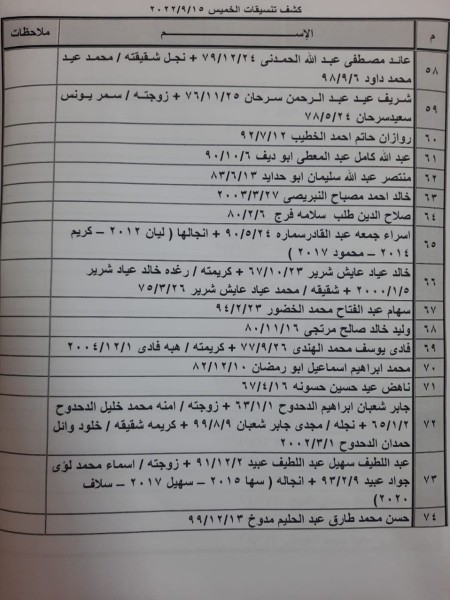 كشف تنسيقات الخميس ٢٠٢٢/٩/١٥
م الاســــــــم ملاحظات
٥٨ عائد مصطفى عبد الله الحمدنى ٧٩/١٢/٢٤ + نجل شقيقته / محمد عيد
محمد داود ٩٨/٩/٦
٥٩ شريف عيد عبد الرحمن سرحان ٧٦/١١/٢٥ + زوجته / سمر يونس
سعيدسرحان ٧٨/٥/٢٤
٦٠ روازان حاتم احمد الخطيب ٩٢/٧/١٢
٦١ عبد الله كامل عبد المعطى ابو ديف ٩٠/١٠/٦
٦٢ منتصر عبد الله سليمان ابو حدايد ٨٣/٦/١٣
٦٣ خالد احمد مصباح النبريصى ٢٠٠٣/٣/٢٧
٦٤ صلاح الدين طلب سلامه فرج ٨٠/٢/٦
٦٥ اسراء جمعه عبد القادرسماره ٩٠/٥/٢٤ + انجالها ( ليان ٢٠١٢ – كريم
٢٠١٤ – محمود ٢٠١٧ )
٦٦ خالد عياد عايش شرير ٦٧/١٠/٢٣ + كريمته / رغده خالد عياد شرير
٢٠٠٠/١/٥ + شقيقه / محمد عياد عايش شرير ٧٥/٣/٢٦
٦٧ سهام عبد الفتاح محمد الخضور ٩٤/٢/٢٣
٦٨ وليد خالد صالح مرتجى ٨٠/١١/١٦
٦٩ فادى يوسف محمد الهندى ٧٧/٩/٢٦ + كريمته / هبه فادى ٢٠٠٤/١٢/١
٧٠ محمد ابراهيم اسماعيل ابو رمضان ٨٢/١٢/١٠
٧١ ناهض عيد حسين حسونه ٦٧/٤/١٦
٧٢ جابر شعبان ابراهيم الدحدوح ٦٣/١/١ + زوجته / امنه محمد خليل الدحدوح
٦٥/١/٢ + نجله / مجدى جابر شعبان ٩٩/٨/٩ + كريمه شقيقه / خلود وائل
حمدان الدحدوح ٢٠٠٢/٣/١
٧٣ عبد اللطيف سهيل عبد اللطيف عبيد ٩١/١٢/٢ + زوجته / اسماء محمد لؤى
جواد عبيد ٩٣/٢/٩ + انجاله ( سها ٢٠١٥ – سهيل ٢٠١٧ – سلاف
٢٠٢٠ )
٧٤ حسن محمد طارق عبد الحليم مدوخ ٩٩/١٢/١٣